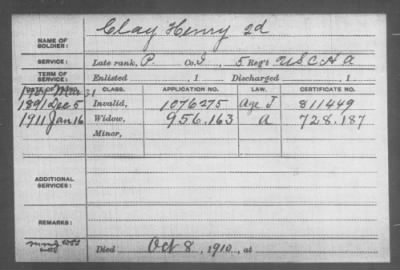 NAME OF SOLDIER: Clay Henry 2d
SERVICE: Late rank, P. Co. I, 5 Reg't U S C H A
TERM OF SERVICE: Enlisted , 1 Discharged , 1
DATE OF FILING. CLASS. APPLICATION NO. LAW. CERTIFICATE NO.
31
1891 Dec 5 Invalid, 1076275 Age J 811449
1911 Jan 16 Widow, 956.163 A 728.187
Minor,
ADDITIONAL SERVICES:
REMARKS:
Died Oct 8, 1910, at